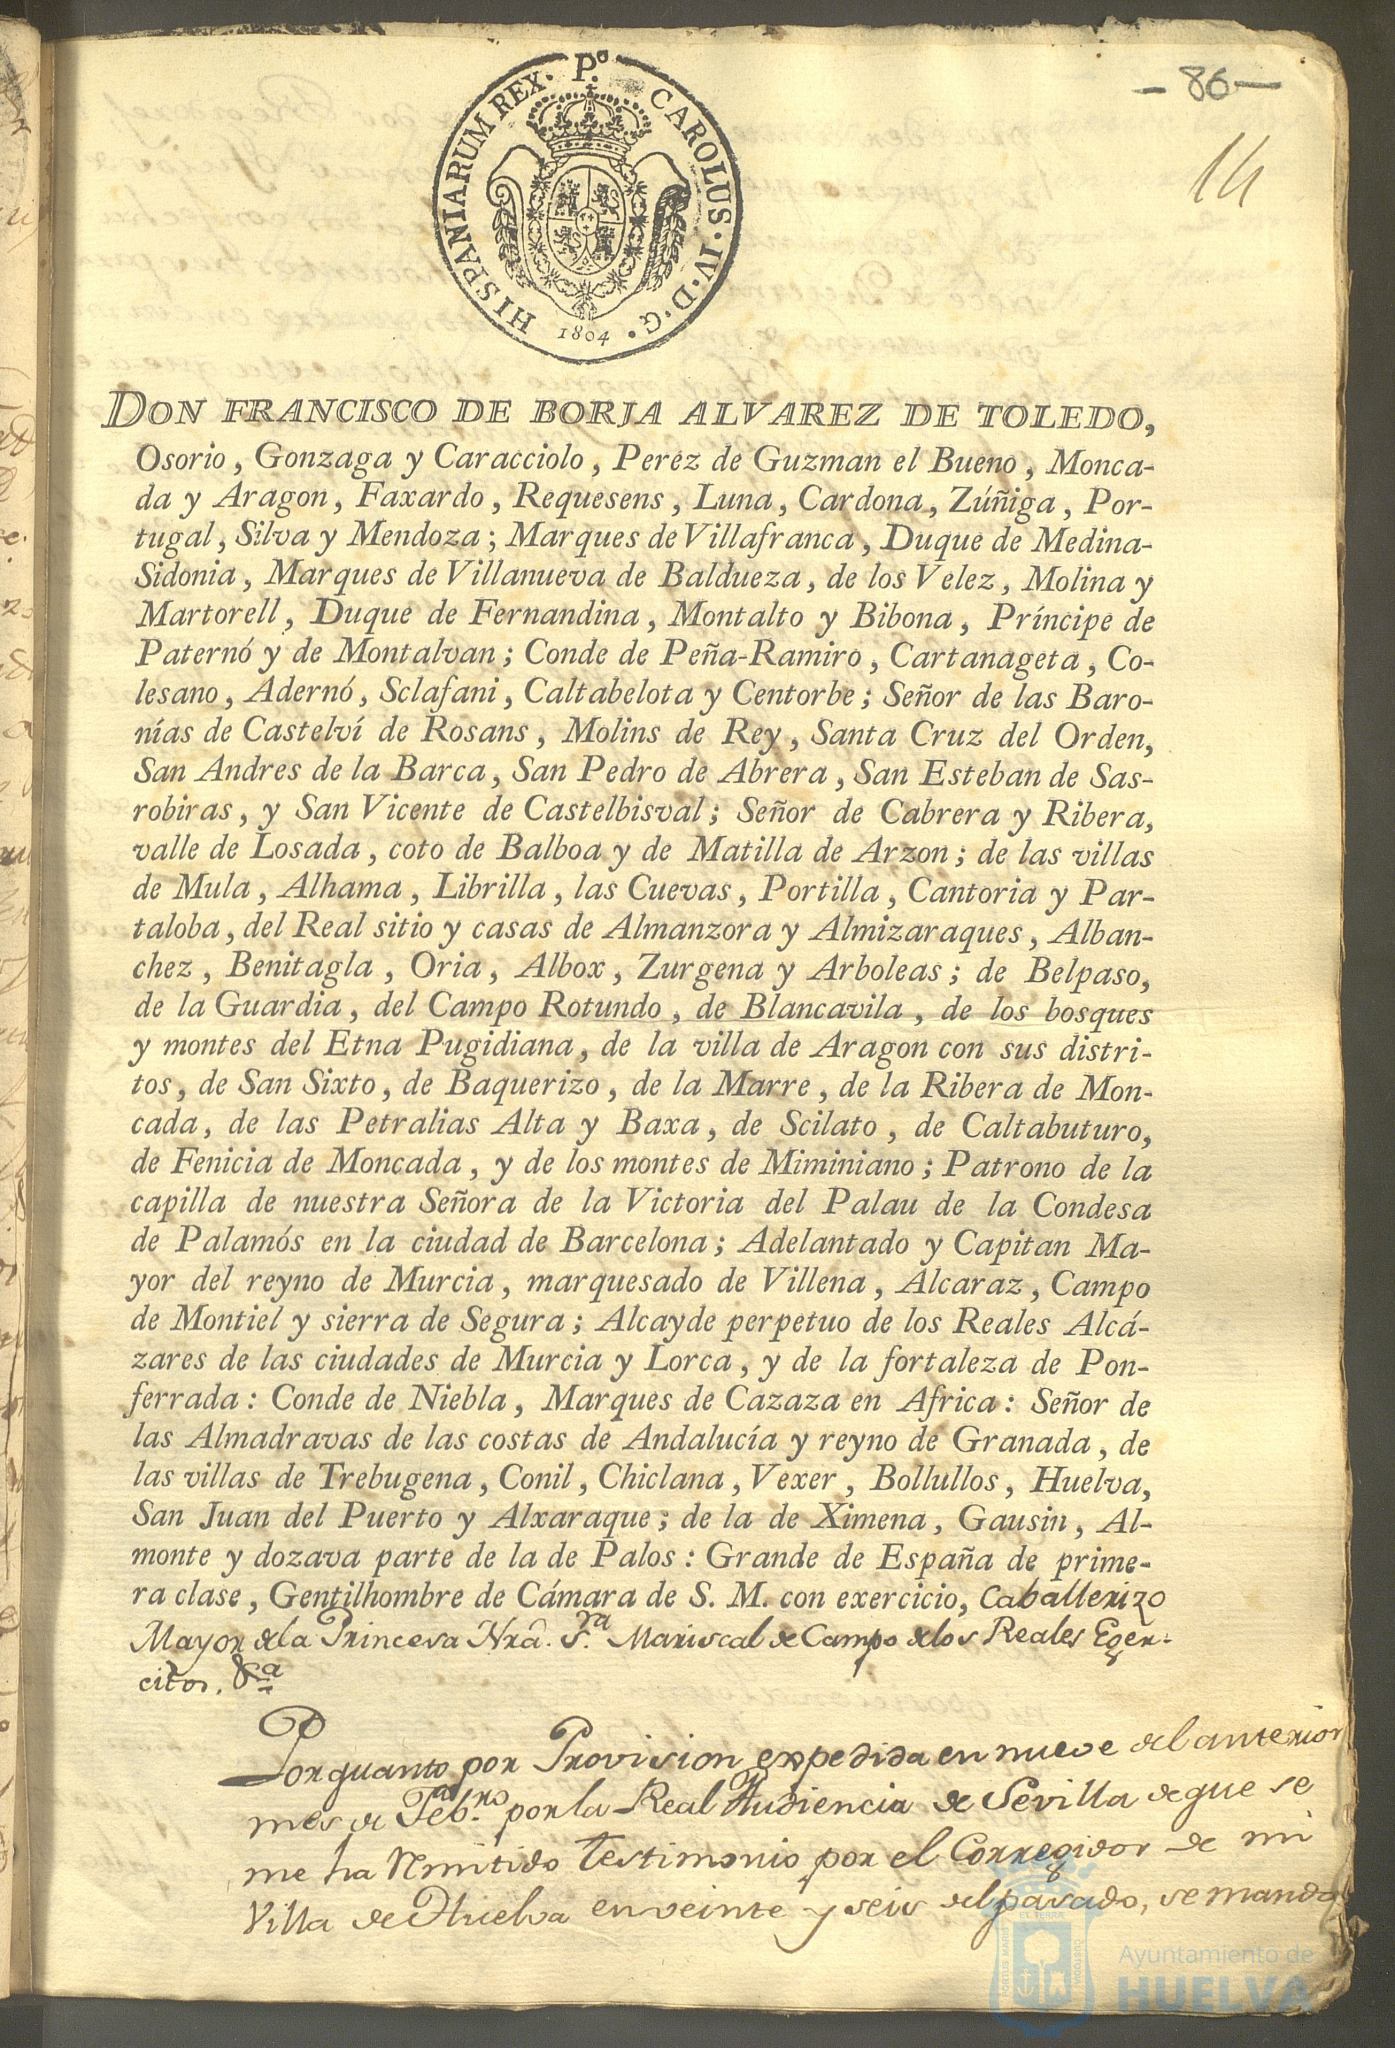 - 86 -
14
HISPANIARUM REX. P.º CAROLUS. IV. D. G.
1804
DON FRANCISCO DE BORJA ALVAREZ DE TOLEDO,
Osorio, Gonzaga y Caracciolo, Perez de Guzman el Bueno, Monca-
da y Aragon, Faxardo, Requesens, Luna, Cardona, Zúñiga, Por-
tugal, Silva y Mendoza; Marques de Villafranca, Duque de Medina-
Sidonia, Marques de Villanueva de Baldueza, de los Velez, Molina y
Martorell, Duque de Fernandina, Montalto y Bibona, Príncipe de
Paternó y de Montalvan; Conde de Peña-Ramiro, Cartanageta, Co-
lesano, Adernó, Sclafani, Caltabelota y Centorbe; Señor de las Baro-
nías de Castelví de Rosans, Molins de Rey, Santa Cruz del Orden,
San Andres de la Barca, San Pedro de Abrera, San Esteban de Sas-
robiras, y San Vicente de Castelbisval; Señor de Cabrera y Ribera,
valle de Losada, coto de Balboa y de Matilla de Arzon; de las villas
de Mula, Alhama, Librilla, las Cuevas, Portilla, Cantoria y Par-
taloba, del Real sitio y casas de Almanzora y Almizaraques, Alban-
chez, Benitagla, Oria, Albox, Zurgena y Arboleas; de Belpaso,
de la Guardia, del Campo Rotundo, de Blancavila, de los bosques
y montes del Etna Pugidiana, de la villa de Aragon con sus distri-
tos, de San Sixto, de Baquerizo, de la Marre, de la Ribera de Mon-
cada, de las Petralias Alta y Baxa, de Scilato, de Caltabuturo,
de Fenicia de Moncada, y de los montes de Miminiano; Patrono de la
capilla de nuestra Señora de la Victoria del Palau de la Condesa
de Palamós en la ciudad de Barcelona; Adelantado y Capitan Ma-
yor del reyno de Murcia, marquesado de Villena, Alcaraz, Campo
de Montiel y sierra de Segura; Alcayde perpetuo de los Reales Alcá-
zares de las ciudades de Murcia y Lorca, y de la fortaleza de Pon-
ferrada: Conde de Niebla, Marques de Cazaza en Africa: Señor de
las Almadravas de las costas de Andalucía y reyno de Granada, de
las villas de Trebugena, Conil, Chiclana, Vexer, Bollullos, Huelva,
San Juan del Puerto y Alxaraque; de la de Ximena, Gausin, Al-
monte y dozava parte de la de Palos: Grande de España de prime-
ra clase, Gentilhombre de Cámara de S. M. con exercicio, Caballerizo
Mayor de la Princesa Nrâ. S.ra Mariscal de Campo de los Reales Eger-
citos, &a
Porquanto por Provision expedida en nueve del anterior
mes de Feb.ro por la Real Audiencia de Sevilla de que se
me ha remitido testimonio por el Corregidor de mi
Villa de Huelva en veinte y seis del pasado, se manda
Ayuntamiento de
HUELVA